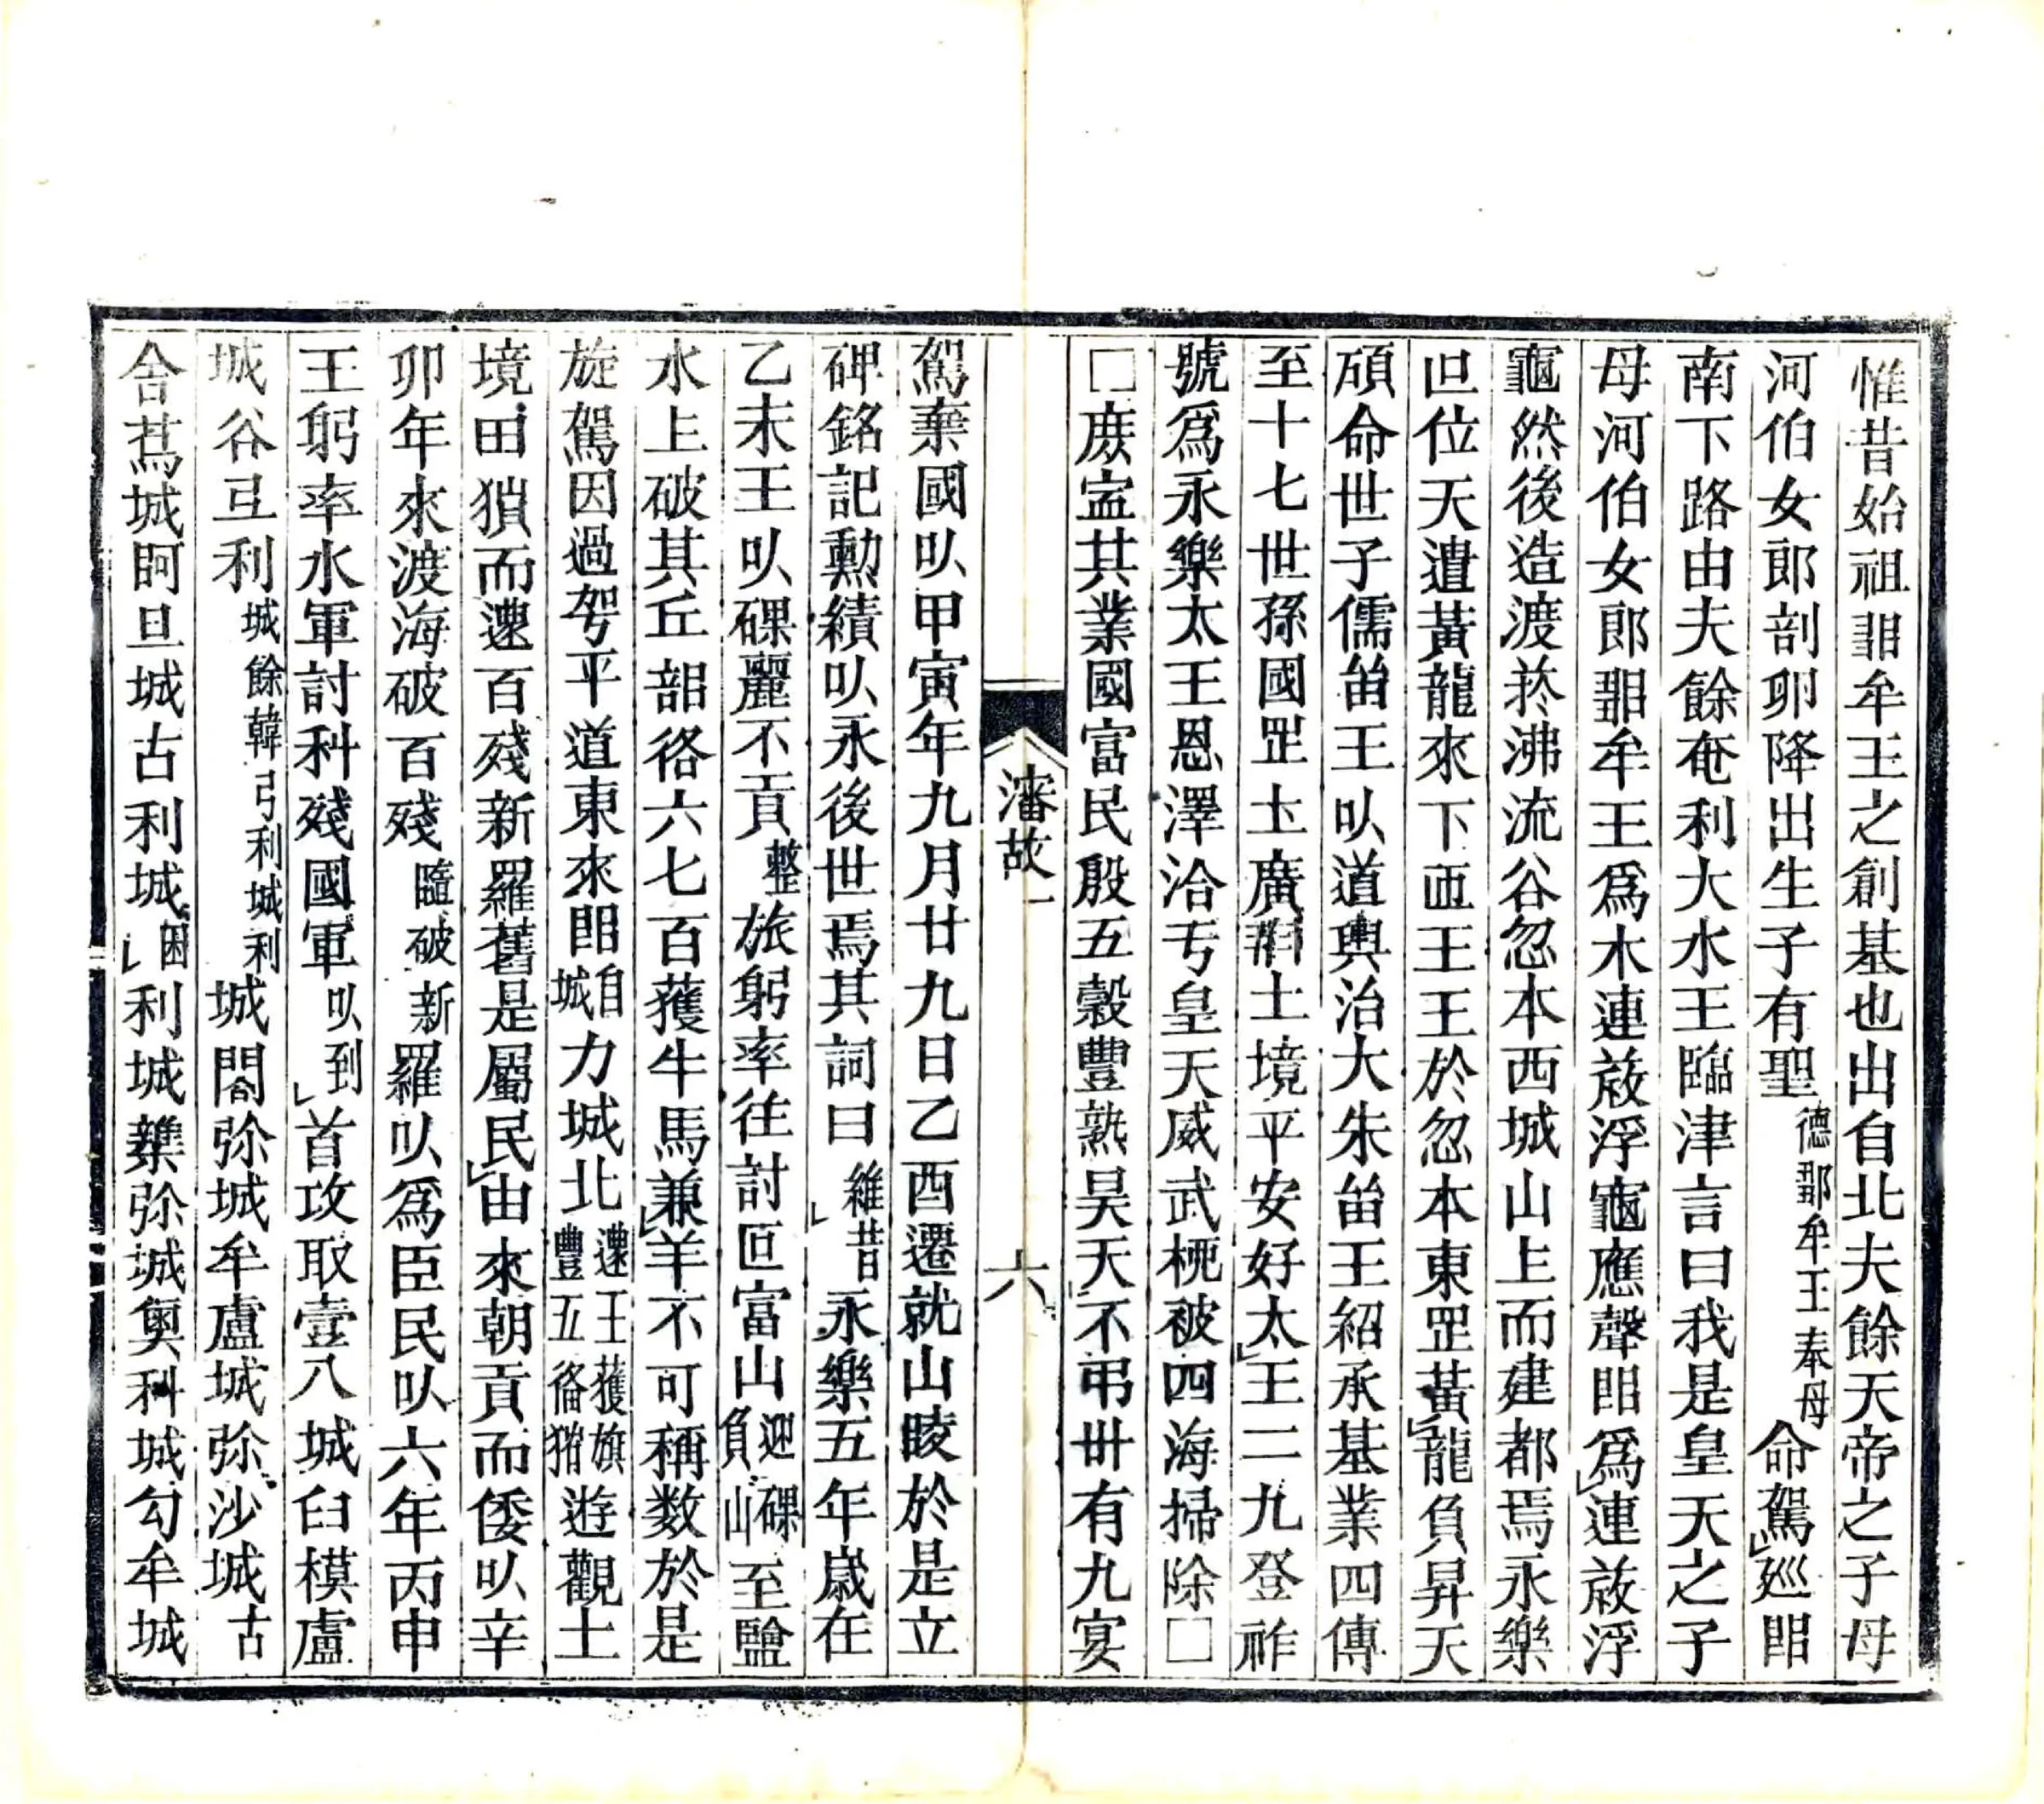 惟昔始祖鄒牟王之創基也出自北夫餘天帝之子母
河伯女郎剖卵降出生子有聖德鄒牟王奉母命駕巡
南下路由夫餘奄利大水王臨津言曰我是皇天之子
母河伯女郎鄒牟王爲木連葭浮龜應聲即爲連葭浮
龜然後造渡於沸流谷忽本西城山上而建都焉永樂
世位天遣黃龍來下迎王王於忽本東罡黃龍負昇天
顧命世子儒留王以道輿治大朱留王紹承基業四傳
至十七世孫國罡上廣開土境平安好太王二九登祚
號爲永樂太王恩澤洽于皇天威武柳被四海掃除□
□庶寧其業國富民殷五穀豐熟昊天不弔卅有九宴
瀋故一
六
駕棄國以甲寅年九月廿九日乙酉遷就山陵於是立
碑銘記勳績以永後世焉其詞曰維昔永樂五年歲在
乙未王以碑麗不貢整旅躬率往討叵富山負山至鹽
水上破其丘部洛六七百獲牛馬兼羊不可稱数於是
旋駕因過 平道東來 力城北 豐五 遊觀土
境田獵而還百殘新羅舊是屬民由來朝貢而倭以辛
卯年來渡海破百殘隨破新羅以爲臣民以六年丙申
王躬率水軍討科殘國軍以到首攻取壹八城臼模盧
城谷 利城餘韓弓利城利城閣弥城牟盧城弥沙城古
舍蔦城阿旦城古利城困利城雜弥城奥科城勾牟城